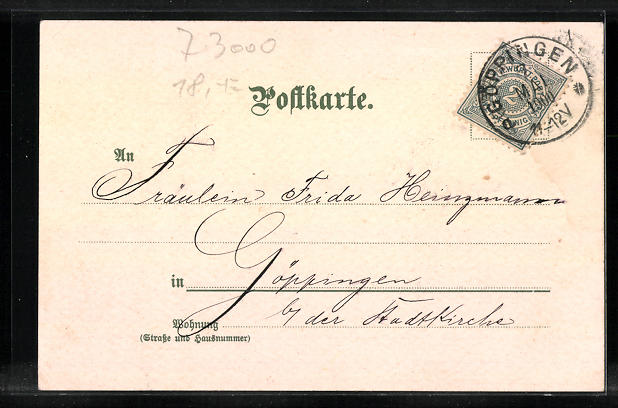 73000
18,-
GÖPPINGEN.
11-12V
Postkarte.
An
Fräulein Frida Heinzmann
in Göppingen
b/ der Stadtkirche
Wohnung
(Straße und Hausnummer)